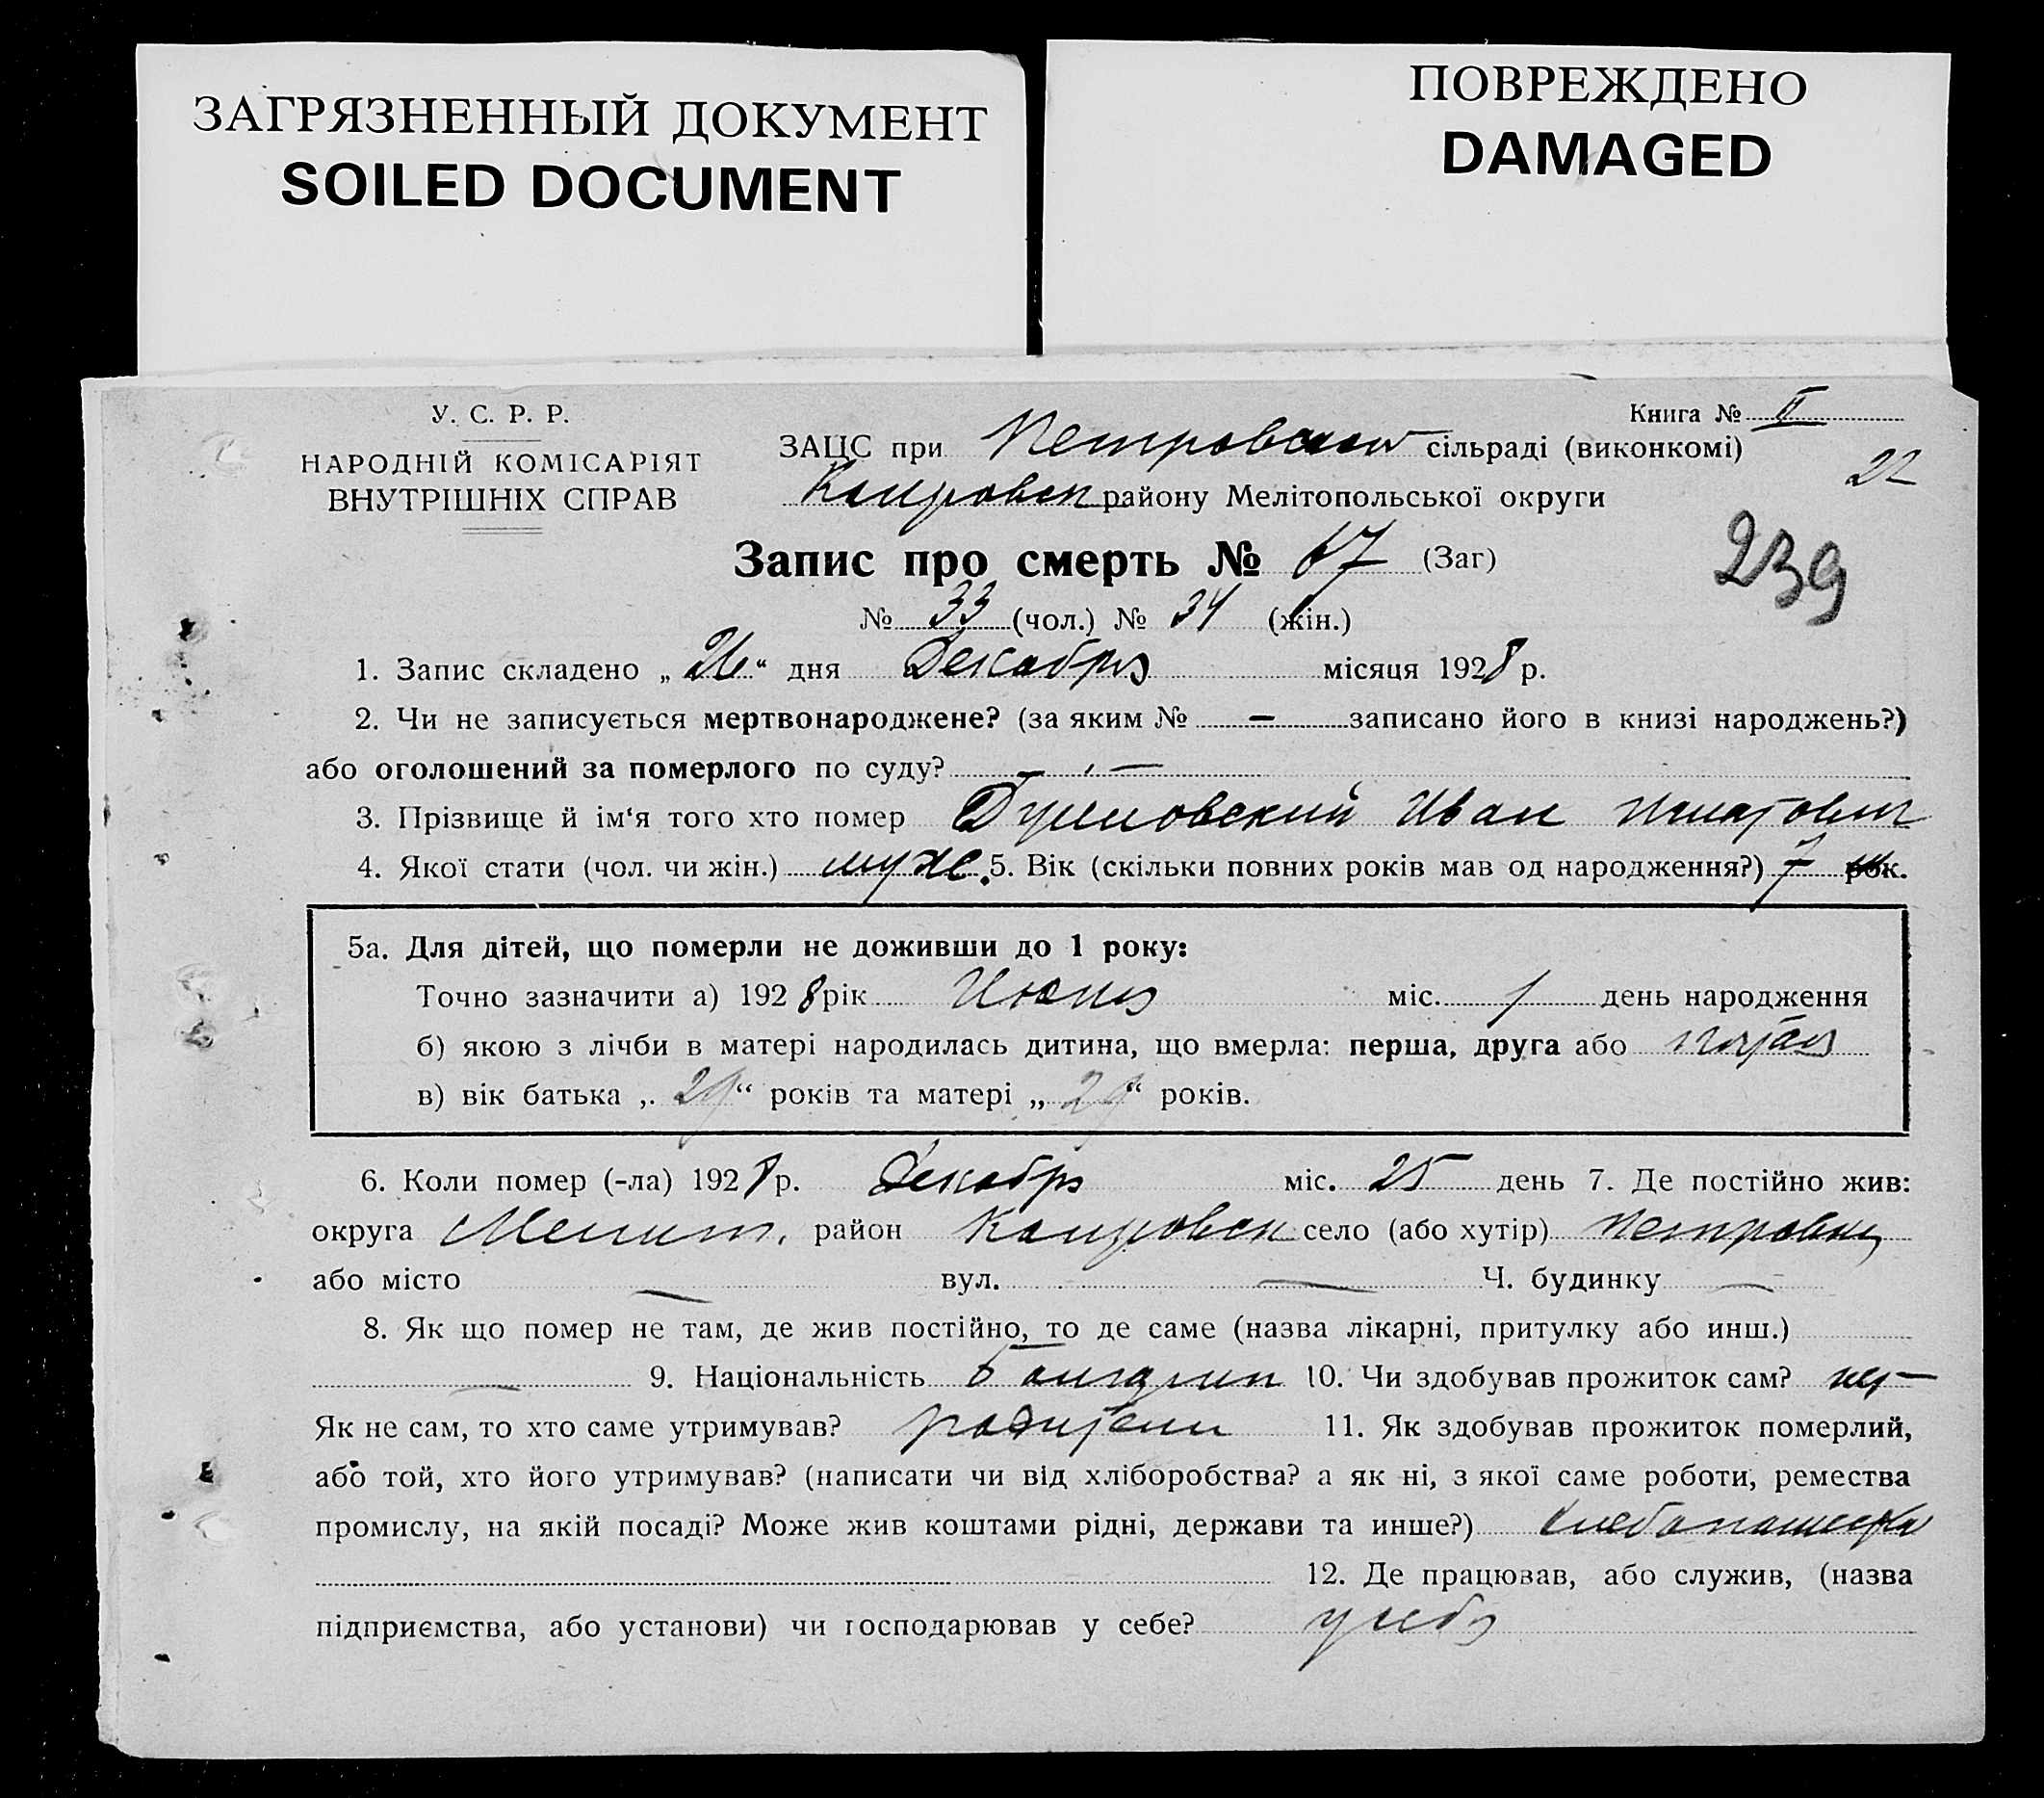 ЗАГРЯЗНЕННЫЙ ДОКУМЕНТ
SOILED DOCUMENT
ПОВРЕЖДЕНО
DAMAGED
У. С. Р. Р.
НАРОДНІЙ КОМІСАРІЯТ
ВНУТРІШНІХ СПРАВ
Книга № II
ЗАЦС при Петровском сільраді (виконкомі)
22
району Мелітопольської округи
Запис про смерть № 67 (Заг)
239
№ 33 (чол.) № 34 (жін.)
1. Запис складено „ 26 “ дня Декабря місяця 1928 р.
2. Чи не записується мертвонароджене? (за яким № — записано його в книзі народжень?)
або оголошений за померлого по суду? —
3. Прізвище й ім‘я того хто помер Иван Игнатович
4. Якої стати (чол. чи жін.) муж. 5. Вік (скільки повних років мав од народження?) 7 рок.
5а. Для дітей, що померли не доживши до 1 року:
Точно зазначити а) 1928 рік Июня міс. 1 день народження
б) якою з лічби в матері народилась дитина, що вмерла: перша, друга або пятая
в) вік батька „ 29 “ років та матері „ 29 “ років.
6. Коли помер (-ла) 1928 р. Декабря міс. 25 день 7. Де постійно жив:
округа Мелит. район село (або хутір) Петровка
або місто — вул. — Ч. будинку —
8. Як що помер не там, де жив постійно, то де саме (назва лікарні, притулку або инш.)
— 9. Національність Болгарин 10. Чи здобував прожиток сам? нет
Як не сам, то хто саме утримував? родители 11. Як здобував прожиток померлий,
або той, хто його утримував? (написати чи від хліборобства? а як ні, з якої саме роботи, ремества
промислу, на якій посаді? Може жив коштами рідні, держави та инше?) хлебопашество
12. Де працював, або служив, (назва
підприємства, або установи) чи господарював у себе? у себя